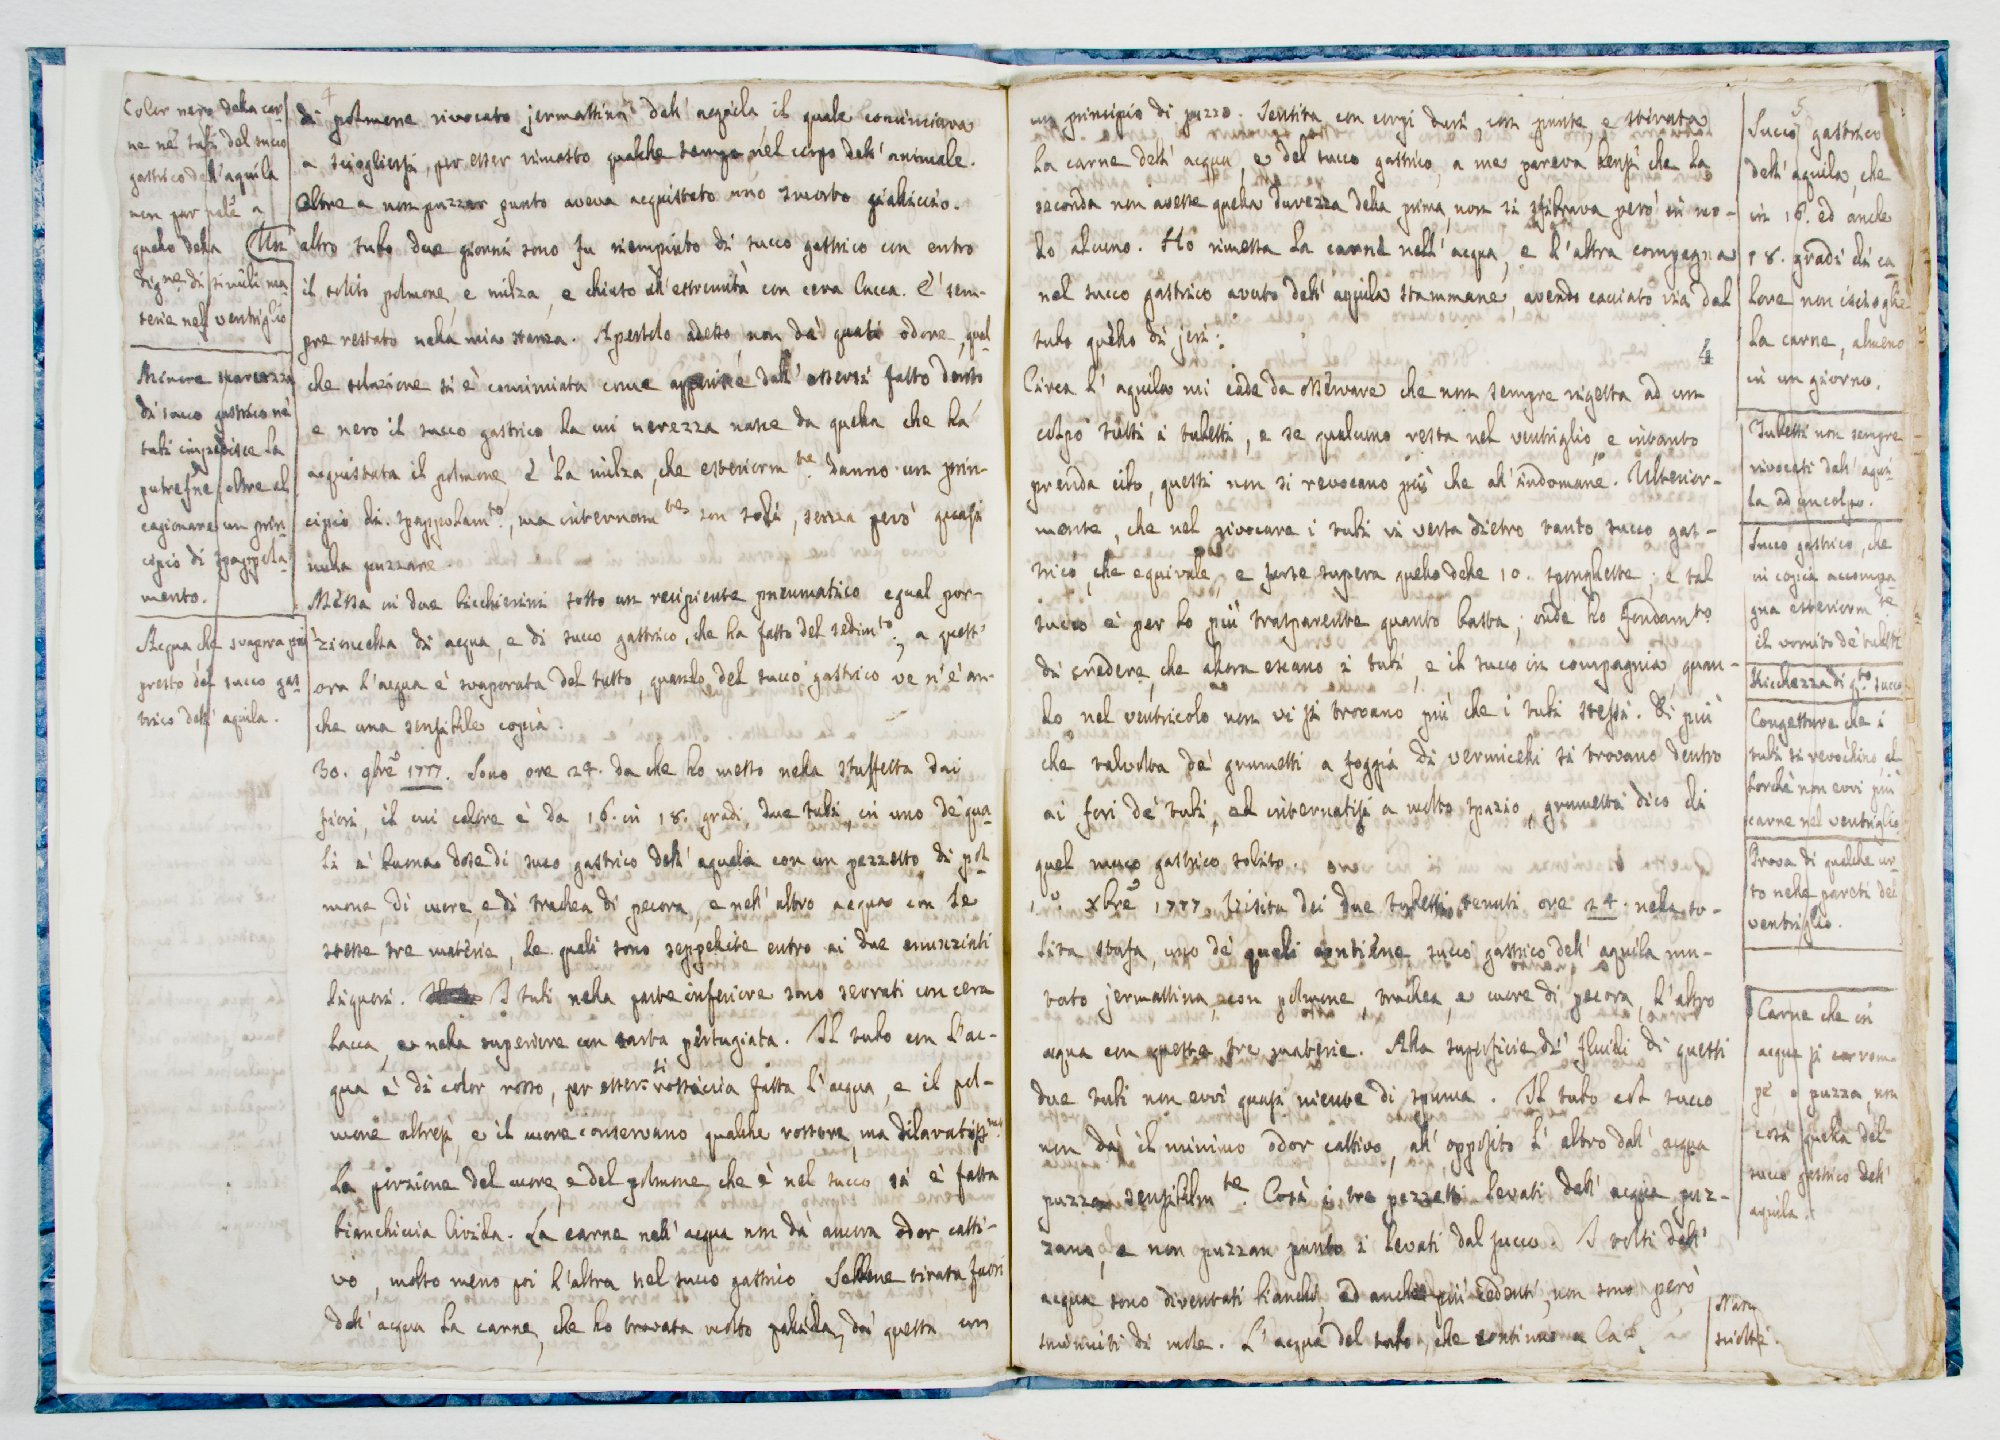 4
Color nero della car
ne ne' tubi del succo
gastrico dell'aquila
non par nelle a
quello della
dig.ne di simili ma
terie nel ventriglio
Minore scarsezza
di succo gastrico ne'
tubi impedisce la
putref.ne oltre al
cagionare un prin
cipio di spappola
mento.
Acqua che svapora più
presto del succo gas
trico dell'aquila.
di polmone rivocato jermattina dall'aquila il quale cominciava
a sciogliersi, per esser rimasto qualche tempo nel corpo dell'animale.
Oltre a non puzzar punto aveva acquistato uno smorto gialliccio.
Un altro tubo due giorni sono fu riempiuto di succo gastrico con entro
il solito polmone, e milza, e chiuso all'estremità con cera lacca. E' sem-
pre restato nella mia stanza. Apertolo adesso non dà quasi odore, qual
che soluzione si è cominciata come apparisce dall'essersi fatto denso
e nero il succo gastrico la cui nerezza nasce da quella che ha
acquistata il polmone e la milza, che esteriorm.te danno un prin-
cipio di spappolam.to, ma internam.te son sodi, senza però quasi
nulla puzzare.
Messa in due bicchierini sotto un recipiente pneumatico egual por-
zioncella di acqua, e di succo gastrico, che ha fatto del sedim.to, a quest'
ora l'acqua è svaporata del tutto, quando del succo gastrico ve n'è an-
che una sensibile copia.
30. 9bre 1777. Sono ore 24. da che ho messo nella stuffetta dai
fiori, il cui calore è da 16. in 18. gradi, due tubi, in uno de' qua
li è buona dose di suco gastrico dell'aquila con un pezzetto di pol
mone, di cuore, e di trachea di pecora, e nell'altro acqua con le
stesse tre materie, le quali sono seppellite entro ai due enunziati
liquori. I tubi nella parte inferiore sono serrati con cera
lacca, e nella superiore con carta pertugiata. Il tubo con l'ac-
qua è di color rosso, per esser si rossiccia fatta l'acqua, e il pol-
mone altresì, e il cuore conservano qualche rossore, ma dilavatiss.mo
La porzione del cuore, e del polmone che è nel succo si è fatta
bianchiccia livida. La carne nell'acqua non dà ancora odor catti-
vo, molto meno poi l'altra nel succo gastrico. Sebbene tirata fuori
dall'acqua la carne, che ho trovata molto pallida, dà questa un
5
un principio di puzzo. Sentita con corpi duri, con punte, e stirata
la carne dell'acqua, e del succo gastrico, a me pareva bensì che la
seconda non avesse quella durezza della prima, non si sfibrava però in mo-
do alcuno. Ho rimessa la carne nell'acqua, e l'altra compagna
nel succo gastrico avuto dall'aquila stammane, avendo cacciato via dal
tubo quello di jeri.
4
Circa l'aquila mi cade da osservare che non sempre rigetta ad un
colpo tutti i tubetti, e se qualcuno resta nel ventriglio, e intanto
prenda cibo, questi non si revocano più che all'indomane. Ulterior-
mente, che nel rivocare i tubi vi versa dietro tanto succo gas-
trico, che equivale, e forse supera quello delle 10. spongette; e tal
succo è per lo più trasparente quanto basta; onde ho fondam.to
di credere, che allora escano i tubi, e il succo in compagnia, quan-
do nel ventricolo non vi si trovano più che i tubi stessi. Di più
che talvolta de' grumetti a foggia di vermicelli si trovano dentro
ai fori de' tubi, ed internatisi a molto spazio, grumetti dico di
quel muco gastrico solito.
1.° Xbre 1777. Visita dei due tubetti tenuti ore 24. nella so-
lita stufa, uno de' quali contiene succo gastrico dell'aquila mu-
tato jermattina, con polmone, trachea, e cuore di pecora, l'altro
acqua con queste tre materie. Alla superficie de' fluidi di questi
due tubi non evvi quasi niente di spuma. Il tubo col succo
non dà il minimo odor cattivo, all'opposito l'altro dell'acqua
puzza sensibilm.te. Così i tre pezzetti levati dall'acqua puz-
zano, e non puzzan punto i levati dal succo. I tolti dall'
acqua sono diventati bianchi, ed anche più cedenti, non sono però
sminuiti di mole. L'acqua del tubo, che continua a
Succo gastrico
dell'aquila, che
in 16. ed anche
18. gradi di ca
lore non iscioglie
la carne, almeno
in un giorno.
Tubetti non sempre
rivocati dall'aqui
la ad un colpo.
Succo gastrico, che
in copia accompa
gna esteriorm.te
il vomito de' tubetti
Ricchezza di q.to succo
Congetture che i
tubi si revochino al
lorchè non evvi più
carne nel ventriglio
Prova di qualche ur
to nelle pareti del
ventriglio.
Carne che in
acqua si corrom-
pe, e puzza, non
così quella del
succo gastrico dell'
aquila.